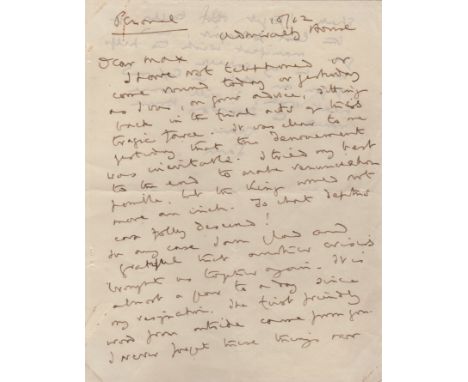 Personal 10/12
Admiralty House
Dear Max
I have not telephoned or
come round today or yesterday
as I was, on your advice, sitting
back in the final acts of this
tragic farce. It was clear to me
yesterday that the denouement
was inevitable. I tried my best
to the end to make renunciation
possible, but the King would not
move an inch. To what depths
can folly descend!
In any case I am glad and
grateful that another crisis
brought us together again. It is
almost a year to a day since
my resignation. The first friendly
word from outside came from you.
I never forget these things nor